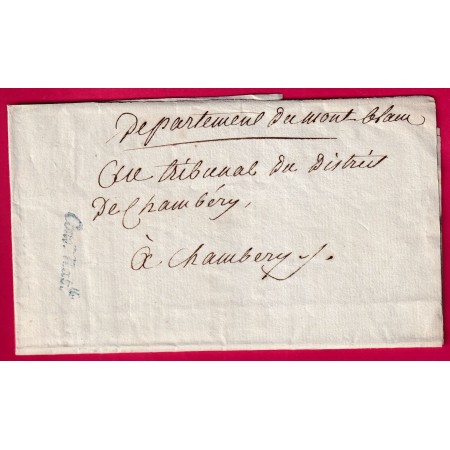 Departement du mont blanc
Au tribunal du District
De Chambéry,
à Chambery
Con. Nat.le